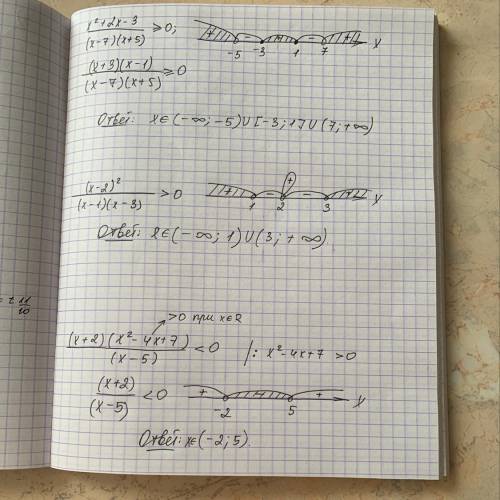 x²+2x-3 / (x-7)(x+5) ≥0; + - + - + -5 -3 1 7 x
(x+3)(x-1) / (x-7)(x+5) ≥0
Ответ: x∈(-∞;-5)∪[-3;1]∪(7;+∞)
(x-2)² / (x-1)(x-3) >0 + - + - + 1 2 3 x
Ответ: x∈(-∞;1)∪(3;+∞).
>0 при x∈R
(x+2)(x²-4x+7) / (x-5) <0 |: x²-4x+7 >0
= ± 11/10
(x+2) / (x-5) <0 + - + -2 5 x
Ответ: x∈(-2;5).